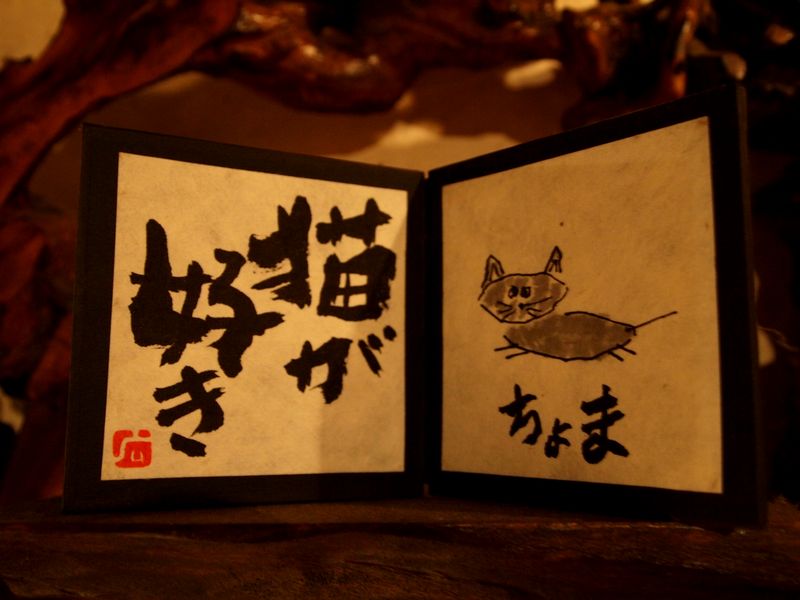 猫が
好き
ちょま